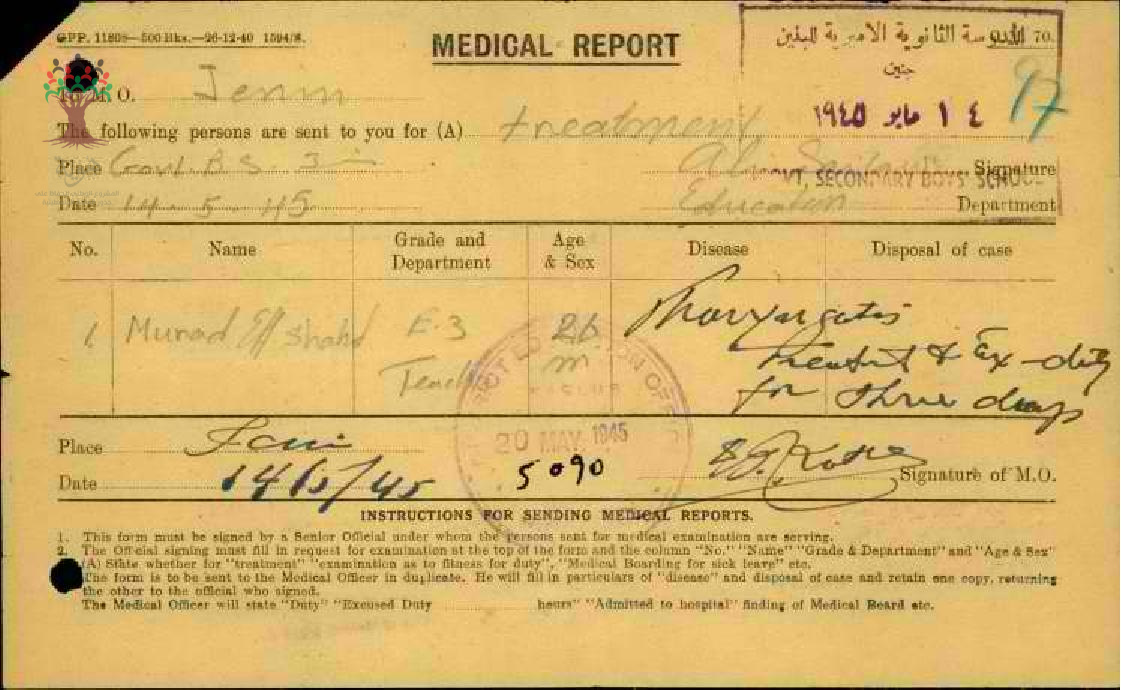 GPP. 11808—500 Bks.—26-12-40 1594/S.
MEDICAL REPORT
المدرسة الثانوية الاميرية للبنين 70.
جنين
١٤ مايو ١٩٤٥
97
To M.O. Jenin
The following persons are sent to you for (A) treatment
Place Govt. B S Signature
GOVT. SECONDARY BOYS' SCHOOL
Date 14-5-45 Education Department
No. Name Grade and Department Age & Sex Disease Disposal of case
1 Murad Eff E.3 Teach 26 m Pharyngitis
Treatment & Ex-duty
for three days
Place Jenin
20 MAY 1945
Date 14/5/45 5090 Signature of M.O.
INSTRUCTIONS FOR SENDING MEDICAL REPORTS.
1. This form must be signed by a Senior Official under whom the persons sent for medical examination are serving.
2. The Official signing must fill in request for examination at the top of the form and the column "No." "Name" "Grade & Department" and "Age & Sex"
(A) State whether for "treatment" "examination as to fitness for duty", "Medical Boarding for sick leave" etc.
The form is to be sent to the Medical Officer in duplicate. He will fill in particulars of "disease" and disposal of case and retain one copy, returning
the other to the official who signed.
The Medical Officer will state "Duty" "Excused Duty hours" "Admitted to hospital" finding of Medical Board etc.